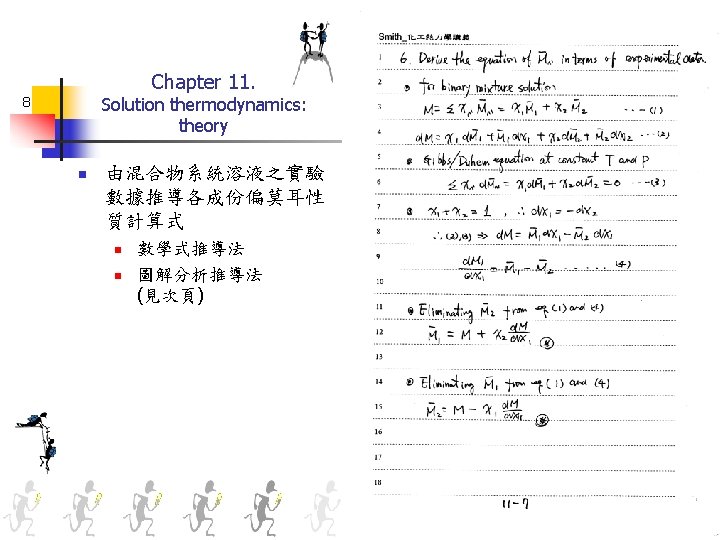 8
Chapter 11.
Solution thermodynamics:
theory
由混合物系統溶液之實驗
數據推導各成份偏莫耳性
質計算式
數學式推導法
圖解分析推導法
(見次頁)
Smith_化工熱力學講義
1 6. Derive the equation of M̄n in terms of experimental data.
2 for binary mixture solution
3 M = Σ xn M̄n = x1 M̄1 + x2 M̄2 ---(1)
4 dM = x1 dM̄1 + M̄1 dx1 + x2 dM̄2 + M̄2 dx2 ---(2)
5 Gibbs/Duhem equation at constant T and P
6 Σ xn dM̄n = x1 dM̄1 + x2 dM̄2 = 0 ---(3)
7 x1 + x2 = 1, ∴ dx2 = -dx1
8 ∴(2),(3) ⇒ dM = M̄1 dx1 - M̄2 dx1
9 dM/dx1 = M̄1 - M̄2 ------(4)
10
11 Eliminating M̄2 from eq (1) and (4)
12 M̄1 = M + x2 dM/dx1
13
14 Eliminating M̄1 from eq (1) and (4)
15 M̄2 = M - x1 dM/dx1
16
17
18
11-7